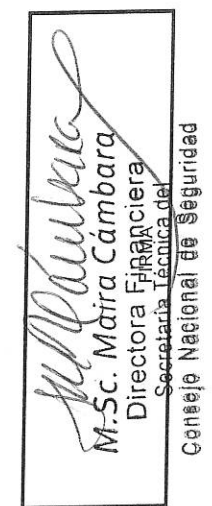 M.Sc. Maira Cámbara
Directora Financiera
FIRMA
Secretaría Técnica del
Consejo Nacional de Seguridad